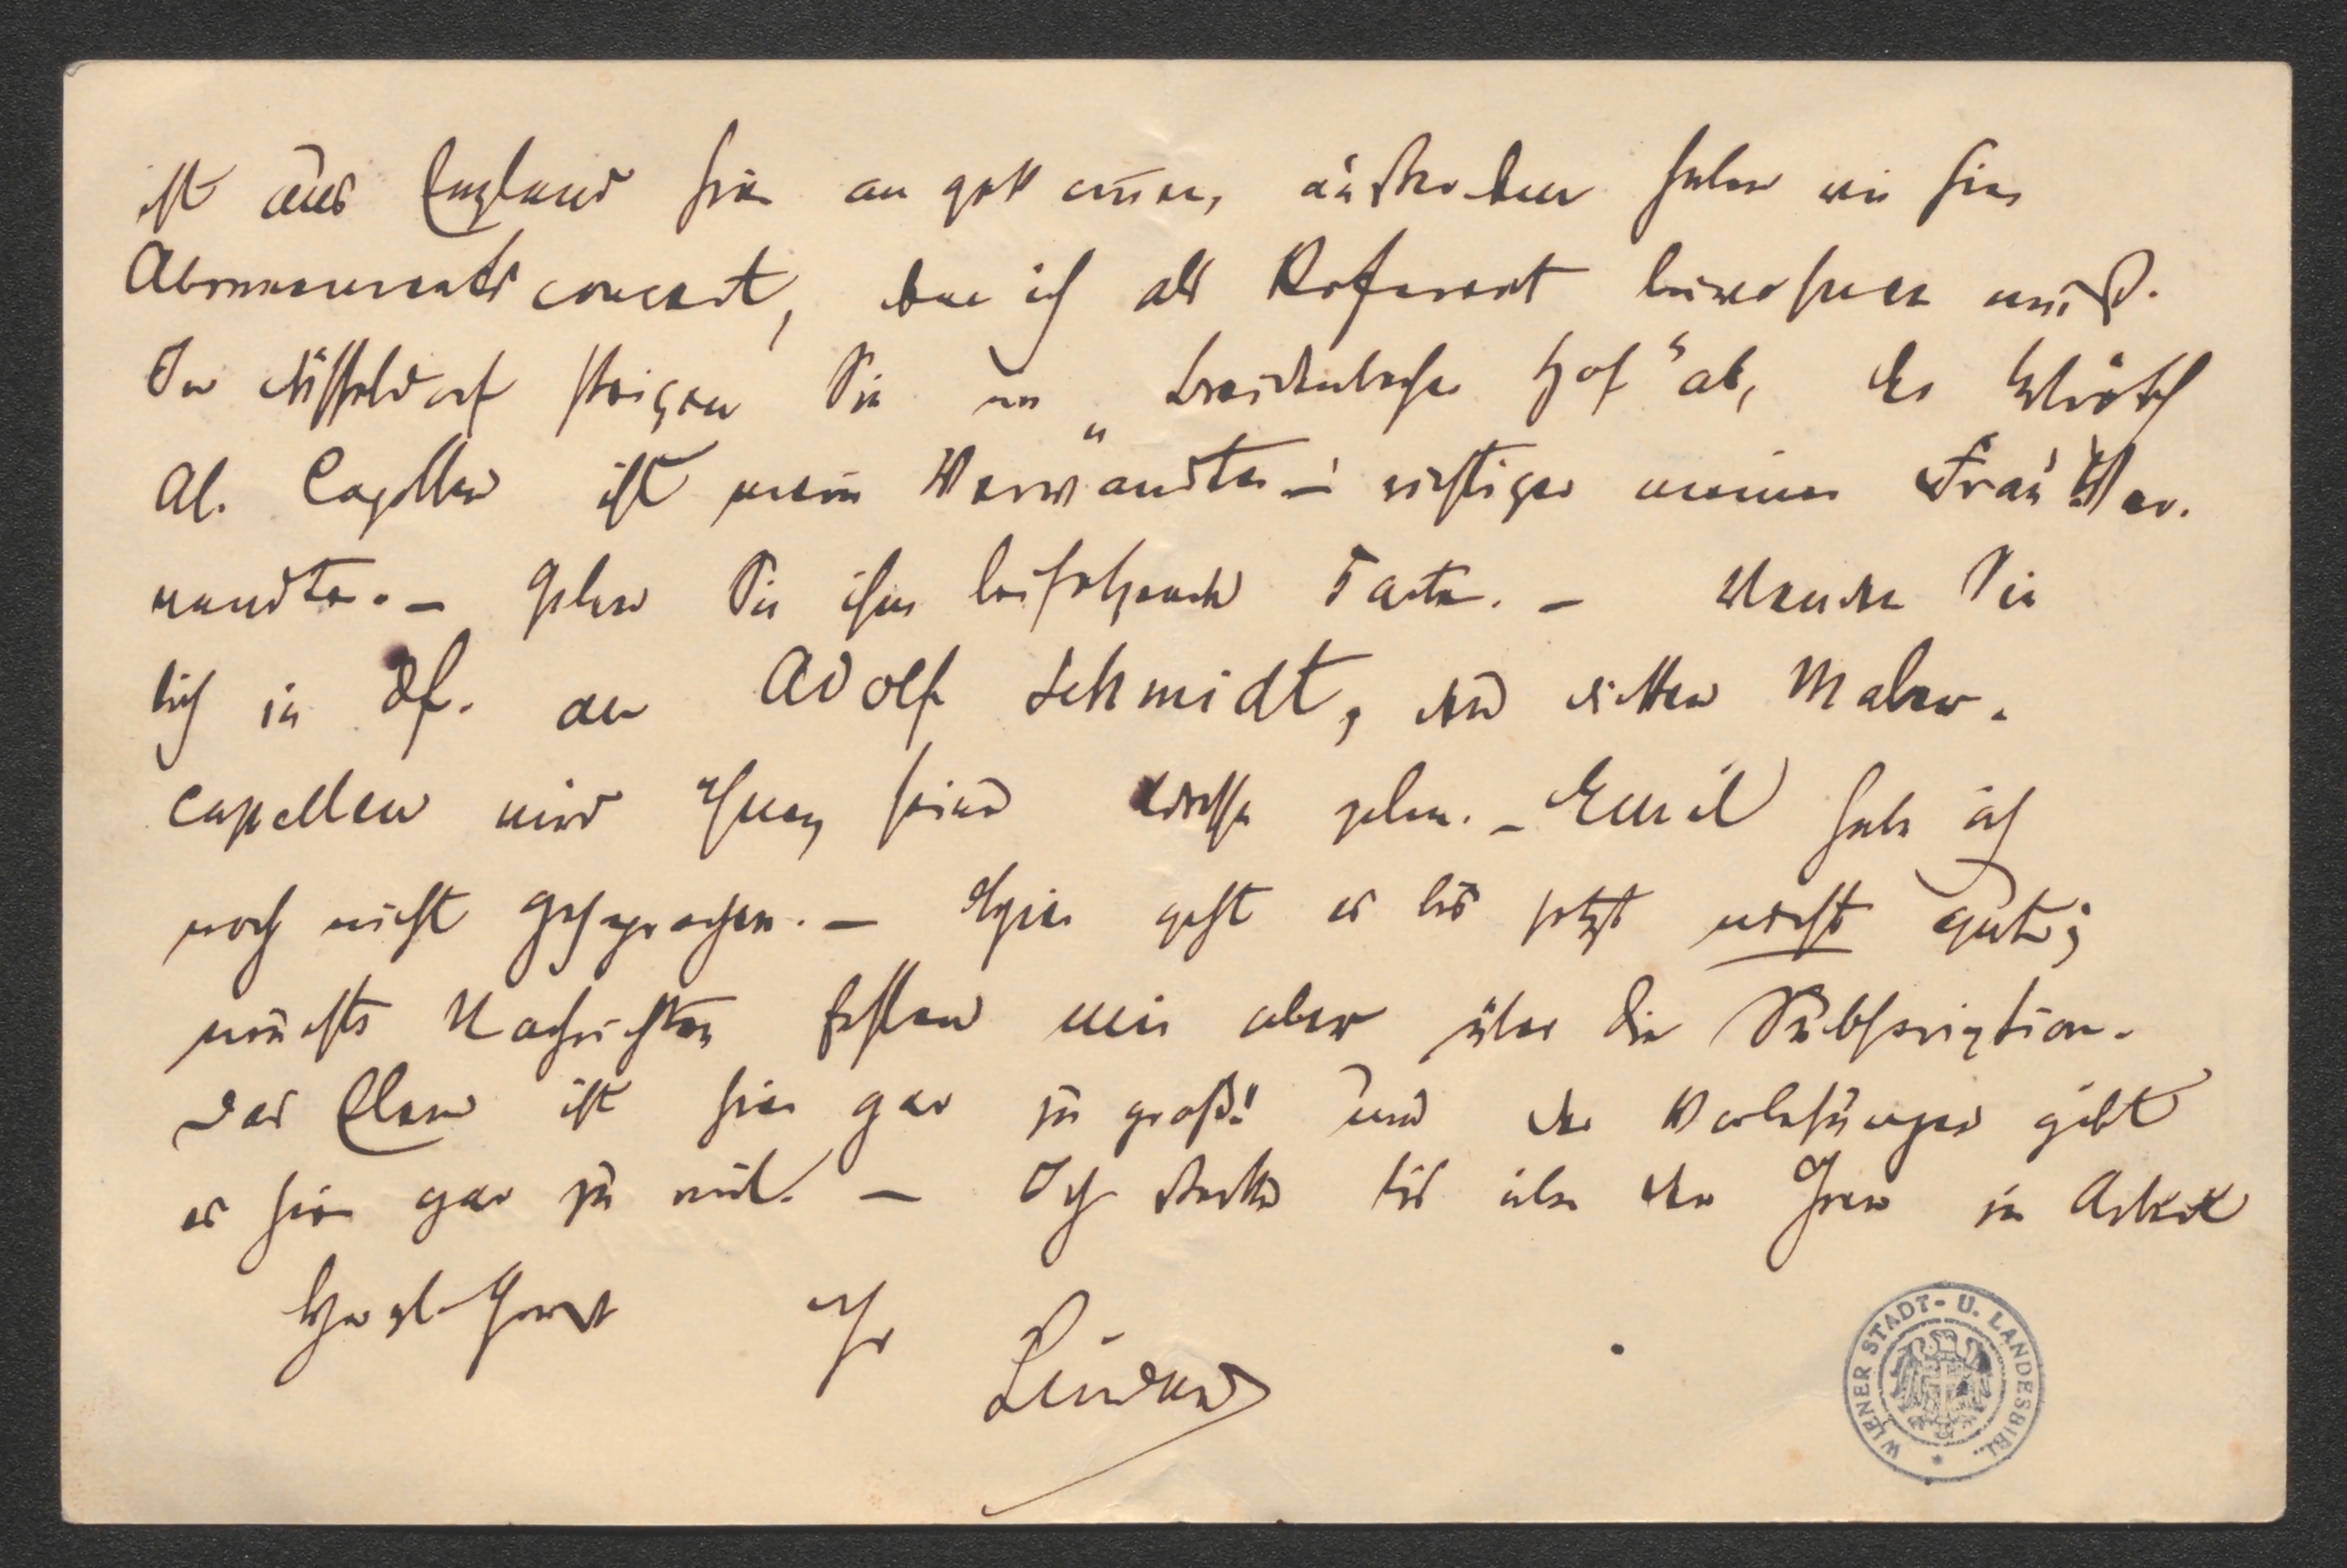 ist aus England hier angekommen, außerdem haben wir hier
Abonnementsconcert, dem ich als Referent beiwohnen muß.
In Düsseldorf steigen Sie im „Breidenbacher Hof“ ab, der Wirth
Al. Capellen ist mein Verwandter – richtiger meiner Frau Ver-
wandter. – Geben Sie ihm beifolgende Karte. – Wenden Sie
sich in Df. an Adolf Schmidt, den Maler.
Capellen wird Ihnen seine Adresse geben. – Emil habe ich
noch nicht gesprochen. – Hier geht es bis jetzt nicht gut;
Nachrichten fehlen mir aber über die Subscription.
Das ist hier gar zu groß! und der Vorlesungen gibt
es hier gar zu viel. – Ich stecke bis über den in Arbeit
Herzl. Gruß Ihr
WIENER STADT- U. LANDESBIBL.